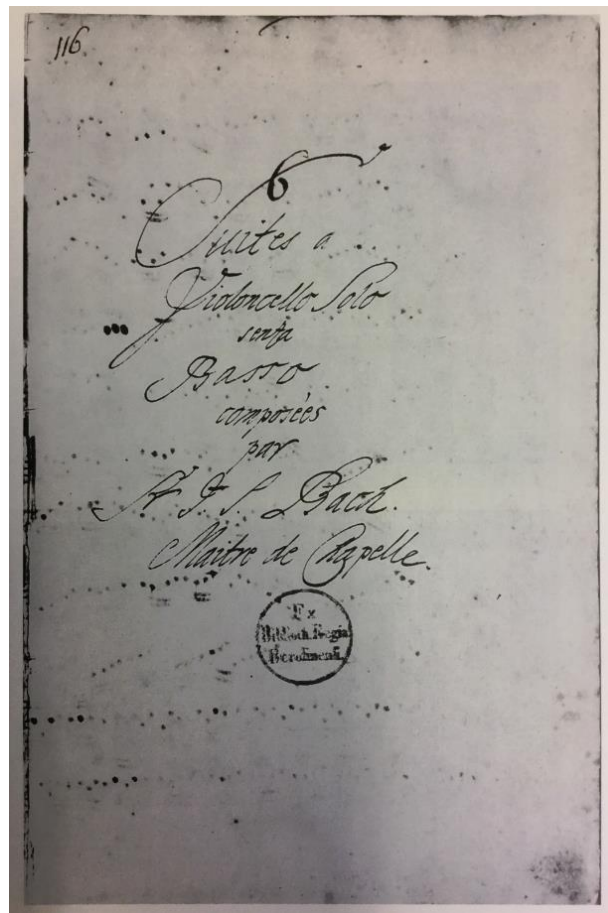 116
6
Suites a
Violoncello Solo
senza
Basso
composées
par
Sr. J. S. Bach.
Maitre de Chapelle.
Ex
Biblioth. Regia
Berolinensi.